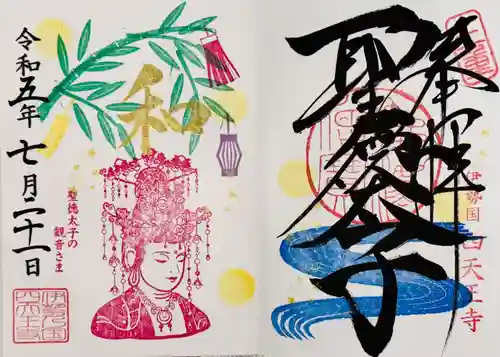 奉拝
聖徳太子
伊勢国 四天王寺
和
聖徳太子の
観音さま
令和五年七月二十一日